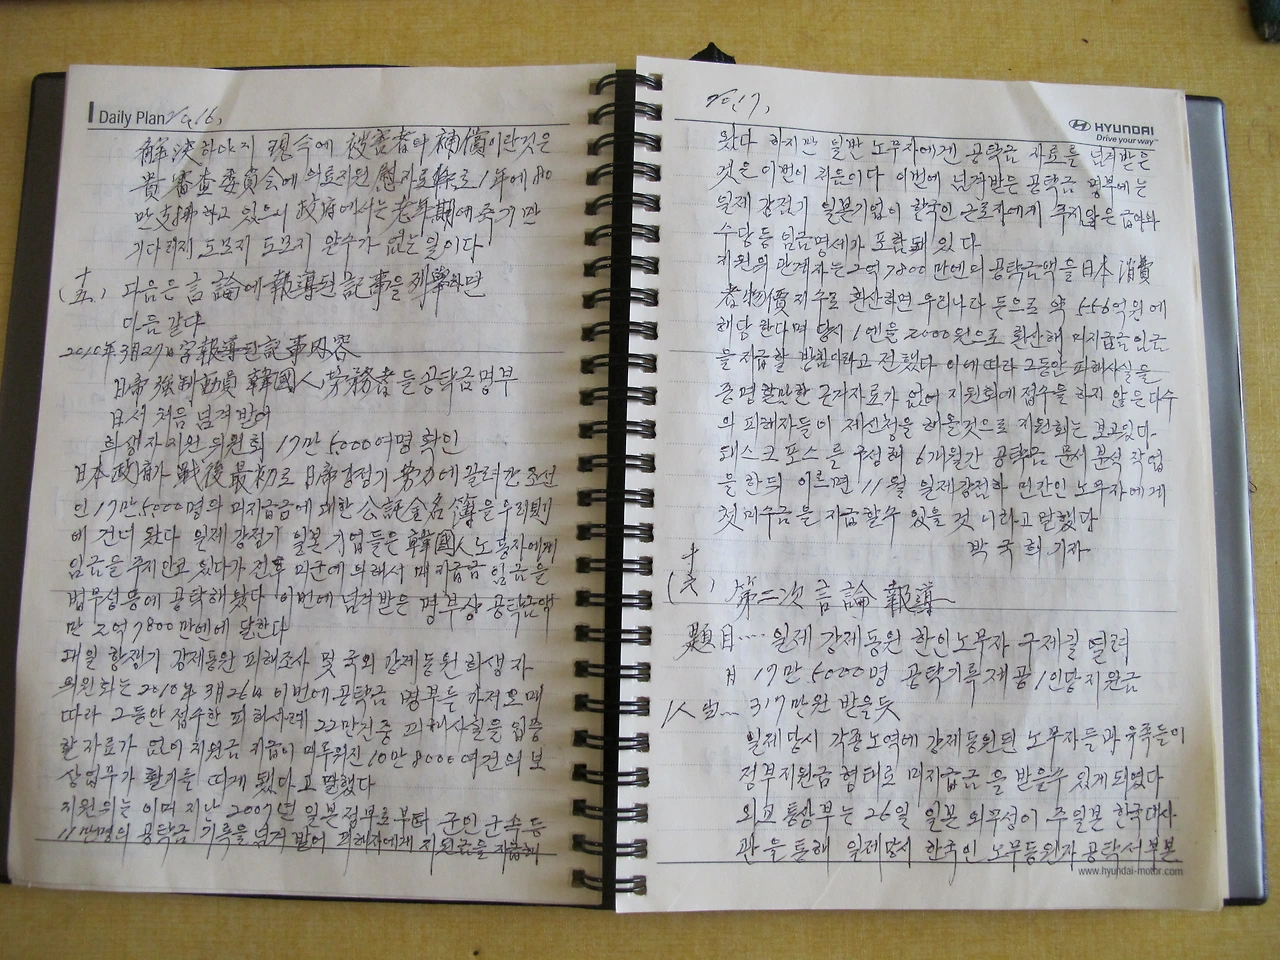 Daily Plan No, 16,
解決하야지 現今에 被害者의 補償이란것은
貴審査委員会에 의료지원 慰자료條로 1年에 80
만支拂하고 있으니 政府에서는 老年期에 죽기만
기다리제 도모지 도모지 알수가 없는일이다
(十五) 다음은 言論에 報導된 記事을 列擧하면
다음 같다
2010年 3月 27日字 報導된 記事內容
日帝强制動員 韓國人 労務者들 공탁금명부
日서 처음 넘겨받어
희생자지원 위원회 17만 5000여명 확인
日本政府가 戰後 最初로 日帝강점기 勞力에 끌려간 조선
인 17만 5000명의 미지급금에 대한 公託金名簿을 우리側
에 건너 왔다 일제 강점기 일본기업들은 韓國人노동자에게
임금을 주지안코 있다가 전후 미군에 의해서 매지급금 임금을
법무성등에 공탁해왔다 이번에 넘겨받은 명부상 공탁금액
만 2억 7800만엔에 달한다
대일 항쟁기 강제동원 피해조사 및 국외 강제동원 희생자
위원회는 2010年 3月 26日 이번에 공탁금 명부를 가져오매
따라 그동안 접수한 피해사례 22만건중 피해사실을 입증
할 자료가 없어 지원금 지급이 미루워진 10만 8000여건의 보
상업무가 활기를 띠게 됬다고 말했다
지원위는 이며 지난 2007년 일본정부로부터 군인 군속등
11만명의 공탁금 기록을 넘겨 받어 피해자에게 지원금을 지급해
No, 17,
HYUNDAI
Drive your way
왔다 하지만 일반 노무자에게 공탁금 자료를 넘겨받은
것은 이번이 처음이다 이번에 넘겨받은 공탁금 명부에는
일제 강점기 일본기업이 한국인 근로자에게 주지않은 급여와
수당등 임금명세가 포함되 있다
지원위 관계자는 2억 7800만엔의 공탁금액을 日本消費
者物價지수로 환산하면 우리나라 돈으로 약 556억원에
해당 한다며 당시 1엔을 2000원으로 환산해 미지급금 임금
을 지급할 방침이라고 전했다 이에따라 그동안 피해사실을
증명할만한 근거자료가 없어 지원회에 접수를 하지 않은 다수
의 피해자들이 재신청을 해올것으로 지원회는 보고있다
태스크포스를 구성해 6개월간 공탁금 문서 분석 작업
을한뒤 이르면 11월 일제강점하 민간인 노무자에게
첫미수금을 지급할수 있을것 이라고 말했다
박국희 기자
(十六) 第二次 言論 報導
題目… 일제 강제동원 한인노무자 구제길 열려
日 17만 5000명 공탁기록제공 1인당지원금
1人당… 317만원 받을듯
일제당시 각종노역에 강제동원된 노무자들과 유족들이
정부지원금 형태로 미지급금을 받을수 있게되였다
외교통상부는 26일 일본 외무성이 주일본 한국대사
관을 통해 일제당시 한국인 노무동원자 공탁서부본
www.hyundai-motor.com